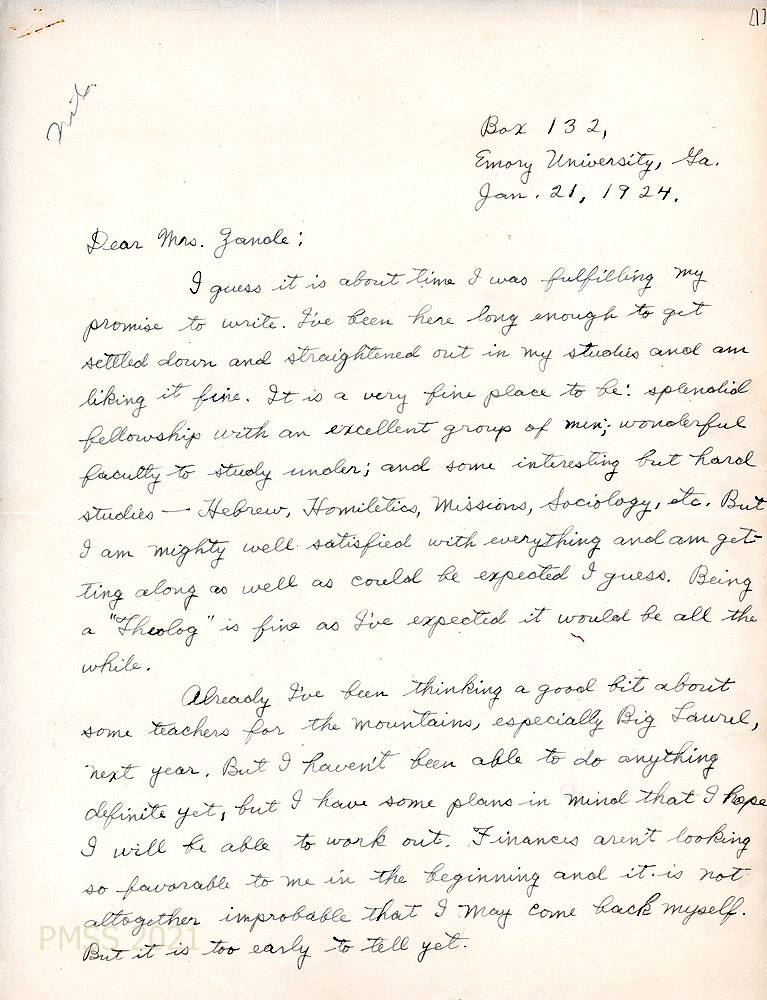 [1]
Box 132,
Emory University, Ga.
Jan. 21, 1924.
Dear Mrs. Zande:
I guess it is about time I was fulfilling my
promise to write. I've been here long enough to get
settled down and straightened out in my studies and am
liking it fine. It is a very fine place to be: splendid
fellowship with an excellent group of men; wonderful
faculty to study under; and some interesting but hard
studies — Hebrew, Homiletics, Missions, Sociology, etc. But
I am mighty well satisfied with everything and am get-
ting along as well as could be expected I guess. Being
a "Theolog" is fine as I've expected it would be all the
while.
Already I've been thinking a good bit about
some teachers for the mountains, especially Big Laurel,
next year. But I haven't been able to do anything
definite yet, but I have some plans in mind that I hope
I will be able to work out. Finances aren't looking
so favorable to me in the beginning and it is not
altogether improbable that I may come back myself.
But it is too early to tell yet.
PMSS 2021